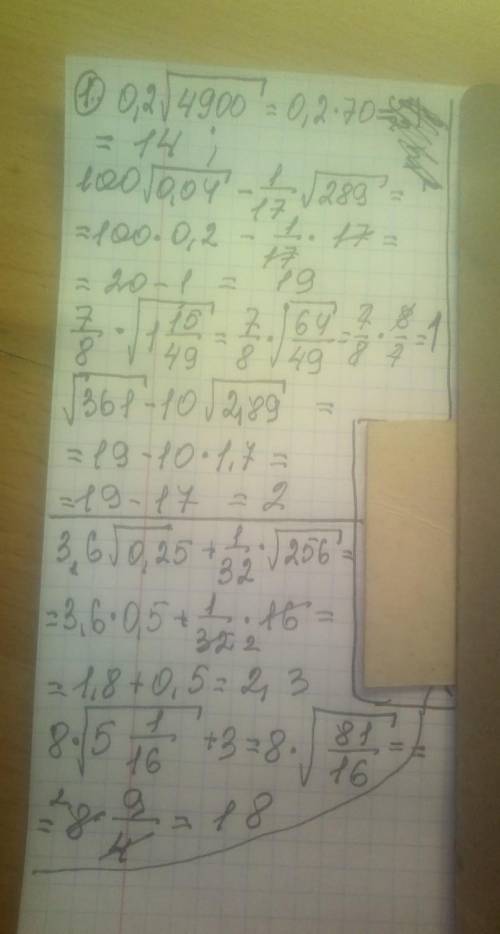 1. 0,2√4900 = 0,2·70=
= 14 ;
100√0,04 - 1/17 √289 =
=100·0,2 - 1/17 · 17 =
= 20-1 = 19
7/8 · √1 15/49 = 7/8 · √64/49 = 7/8 · 8/7 = 1
√361 - 10√2,89 =
=19-10·1,7 =
=19-17 = 2
3,6√0,25 + 1/32 · √256 =
=3,6·0,5 + 1/32 2 · 16 =
=1,8+0,5= 2,3
8·√5 1/16 +3 = 8·√81/16 = =
= 2 8 · 9/4 = 18